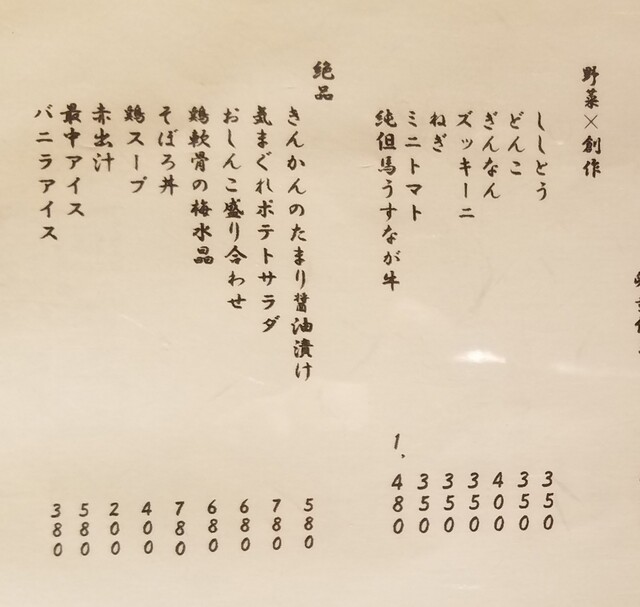 野菜×創作
ししとう 350
どんこ 350
ぎんなん 400
ズッキーニ 350
ねぎ 350
ミニトマト 350
純但馬うすなが牛 1,480
絶品
きんかんのたまり醤油漬け 580
気まぐれポテトサラダ 780
おしんこ盛り合わせ 680
鶏軟骨の梅水晶 680
そぼろ丼 780
鶏スープ 400
赤出汁 200
最中アイス 580
バニラアイス 380